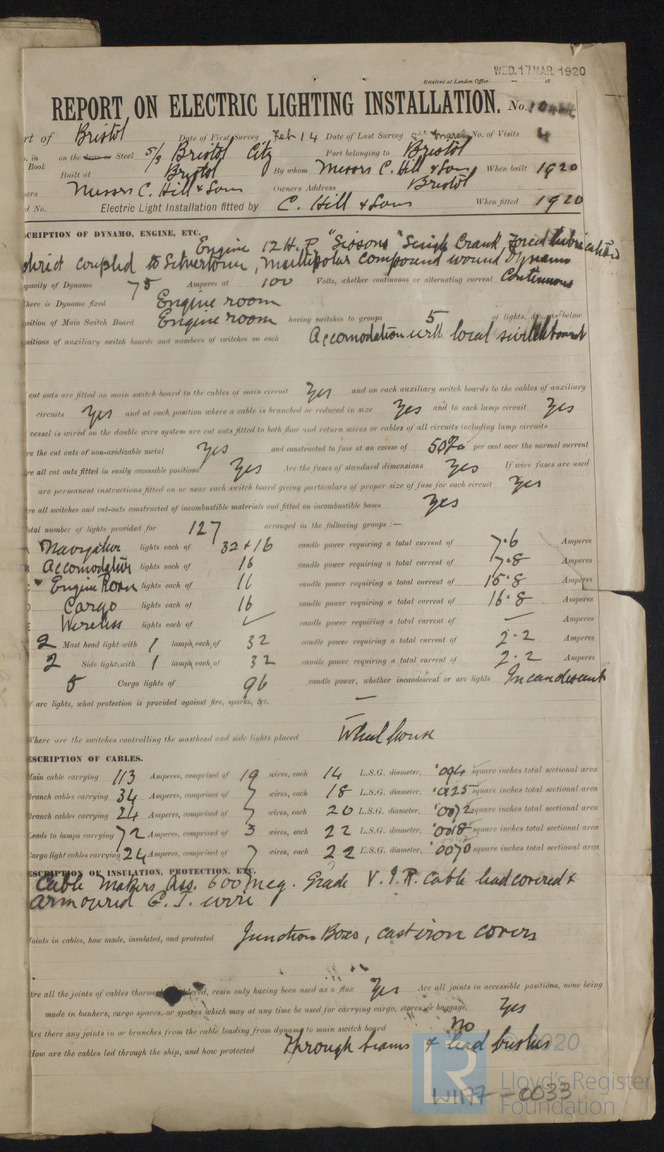 WED. 17 MAR. 1920
Received at London Office
REPORT ON ELECTRIC LIGHTING INSTALLATION. No.
rt of Bristol Date of First Survey Feb 14 Date of Last Survey March No. of Visits 4
in Book on the Steel S/S Bristol City Port belonging to Bristol
Built at Bristol By whom Messrs C. Hill & Son When built 1920
ners Messrs C. Hill & Sons Owners Address Bristol
d No. Electric Light Installation fitted by C. Hill & Sons When fitted 1920
SCRIPTION OF DYNAMO, ENGINE, ETC.
Engine 12 H.P. "Sissons" Single Crank, Forced lubrication
direct coupled to Silvertown, Multipolar compound wound Dynamo
apacity of Dynamo 75 Amperes at 100 Volts, whether continuous or alternating current Continuous
here is Dynamo fixed Engine room
osition of Main Switch Board Engine room having switches to groups 5 of lights, &c., as below
ositions of auxiliary switch boards and numbers of switches on each Accomodation with local switchboard
cut outs are fitted on main switch board to the cables of main circuit Yes and on each auxiliary switch boards to the cables of auxiliary
circuits Yes and at each position where a cable is branched or reduced in size Yes and to each lamp circuit Yes
vessel is wired on the double wire system are cut outs fitted to both flow and return wires or cables of all circuits including lamp circuits
re the cut outs of non-oxidizable metal Yes and constructed to fuse at an excess of 50% per cent over the normal current
re all cut outs fitted in easily accessible positions Yes Are the fuses of standard dimensions Yes If wire fuses are used
are permanent instructions fitted on or near each switch board giving particulars of proper size of fuse for each circuit Yes
re all switches and cut-outs constructed of incombustible materials and fitted on incombustible bases Yes
otal number of lights provided for 127 arranged in the following groups :—
Navigation lights each of 32 + 16 candle power requiring a total current of 7.6 Amperes
Accomodation lights each of 16 candle power requiring a total current of 17.8 Amperes
Engine Room lights each of 16 candle power requiring a total current of 15.8 Amperes
Cargo lights each of 16 candle power requiring a total current of 16.8 Amperes
Wireless lights each of candle power requiring a total current of — Amperes
2 Mast head light with 1 lamp each of 32 candle power requiring a total current of 2.2 Amperes
2 Side light with 1 lamp each of 32 candle power requiring a total current of 2.2 Amperes
5 Cargo lights of 96 candle power, whether incandescent or arc lights Incandescent
f arc lights, what protection is provided against fire, sparks, &c. —
Where are the switches controlling the masthead and side lights placed Wheel house
ESCRIPTION OF CABLES.
Main cable carrying 113 Amperes, comprised of 19 wires, each 14 L.S.G. diameter, .094 square inches total sectional area
Branch cables carrying 34 Amperes, comprised of 7 wires, each 18 L.S.G. diameter, .0125 square inches total sectional area
Branch cables carrying 24 Amperes, comprised of 7 wires, each 20 L.S.G. diameter, .0072 square inches total sectional area
Leads to lamps carrying 7.2 Amperes, comprised of 3 wires, each 22 L.S.G. diameter, .0018 square inches total sectional area
Cargo light cables carrying 24 Amperes, comprised of 7 wires, each 22 L.S.G. diameter, .0070 square inches total sectional area
ESCRIPTION OF INSULATION, PROTECTION, ETC.
Cable Makers Ass. 600 meg. Grade V.I.R. Cable lead covered &
armoured G.I. wire
Joints in cables, how made, insulated, and protected Junction Boxes, cast iron covers
Are all the joints of cables thoroughly soldered, resin only having been used as a flux Yes Are all joints in accessible positions, none being
made in bunkers, cargo spaces, or spaces which may at any time be used for carrying cargo, stores, or baggage Yes
Are there any joints in or branches from the cable leading from dynamo to main switch board No
How are the cables led through the ship, and how protected Through beams & lead bushes
©2020
Lloyd's Register
Foundation
W1177-0033